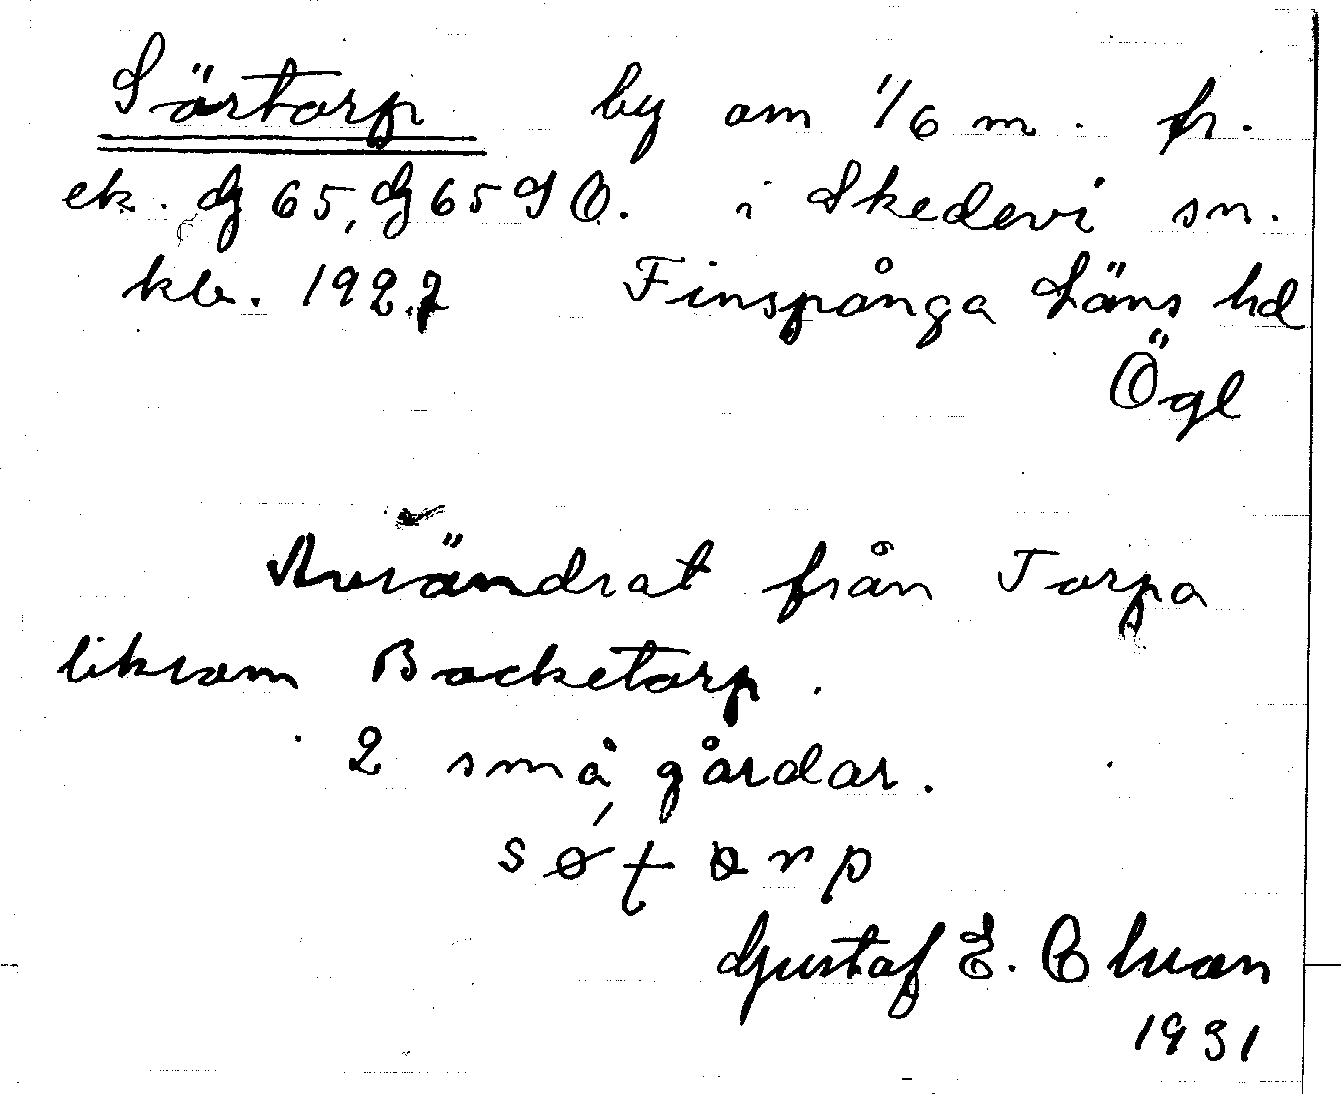 Särtorp by om 1/6 m. fr.
ek. G 65, G 65 SO. i Skedevi sn.
kb. 1927 Finspånga Läns hd
Ögl
Avrändrat från Torpa
liksom Backetorp.
2 små gårdar.
Gustaf E. Olson
1931